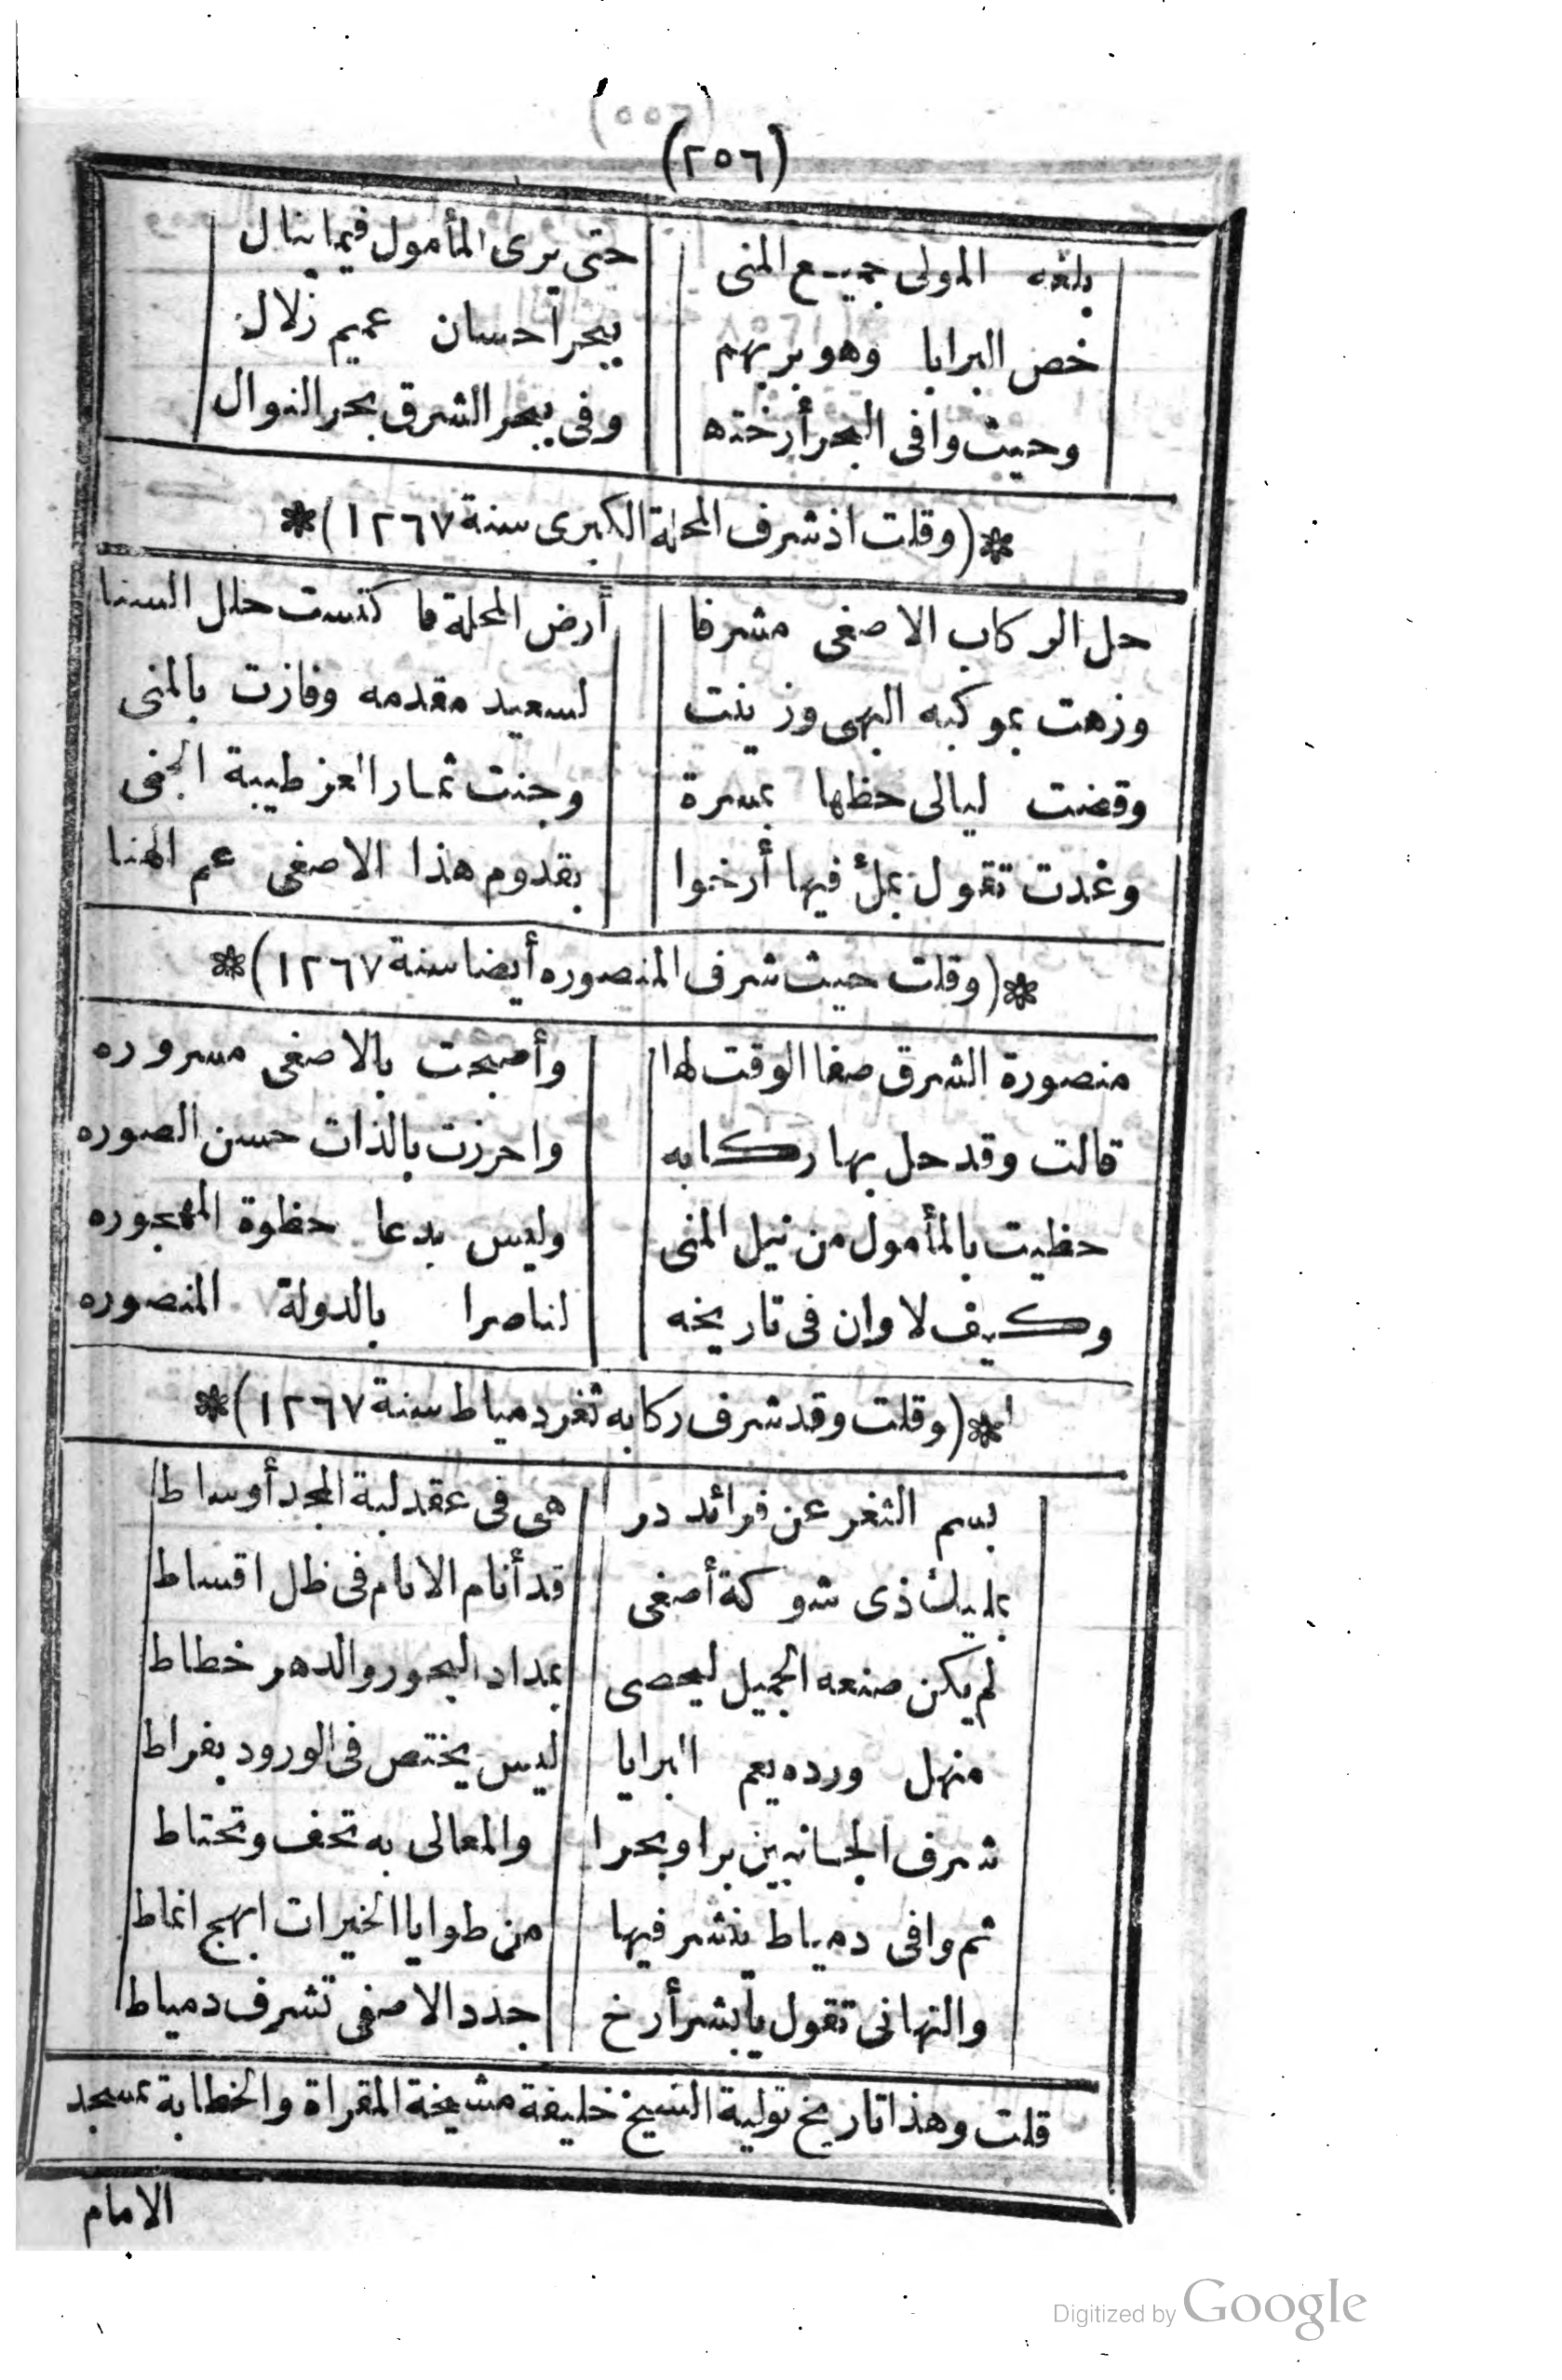 (٢٥٦)
بلغه المولى جميع المنى حتى يرى المأمول فيما ينال
خص البرايا وهو بر بهم ببحر احسان عميم زلال
وحيث وافى البحر أرخته وفى ببحر الشرق بحر النوال
*(وقلت اذ شرف المحلة الكبرى سنة ١٢٦٧)*
حل الركاب الاصفى مشرفا أرض المحلة فاكتست حلل السنا
وزهت بموكبه البهى وزينت لسعيد مقدمه وفازت بالمنى
وقضت ليالى حظها بمسرة وجنت ثمار العز طيبة الجنى
وغدت تقول بملئ فيها أرخوا بقدوم هذا الاصفى عم الهنا
*(وقلت حيث شرف المنصوره أيضا سنة ١٢٦٧)*
منصورة الشرق صفا الوقت لها وأصبحت بالاصفى مسروره
قالت وقد حل بها ركابه واحرزت بالذات حسن الصوره
حظيت بالمأمول من نيل المنى وليس بدعا حظوة المهجوره
وكيف لا وان فى تاريخه لناصرا بالدولة المنصوره
*(وقلت وقد شرف ركابه ثغر دمياط سنة ١٢٦٧)*
بسم الثغر عن فرائد در هى فى عقد لبة المجد أوساط
بمليك ذى شوكة أصفى قد أنام الانام فى ظل اقساط
لم يكن صنعه الجميل ليحصى بمداد البحور والدهر خطاط
منهل ورده يعم البرايا ليس يختص فى الورود بفراط
شرف الجانبين برا وبحرا والمعالى به تحف وتحتاط
ثم وافى دمياط ينشر فيها من طوايا الخيرات ابهج انماط
والتهانى تقول يا بشر أرخ جدد الاصفى تشرف دمياط
قلت وهذا تاريخ تولية الشيخ خليفة مشيخة المقراة والخطابة بمسجد
الامام
Digitized by Google